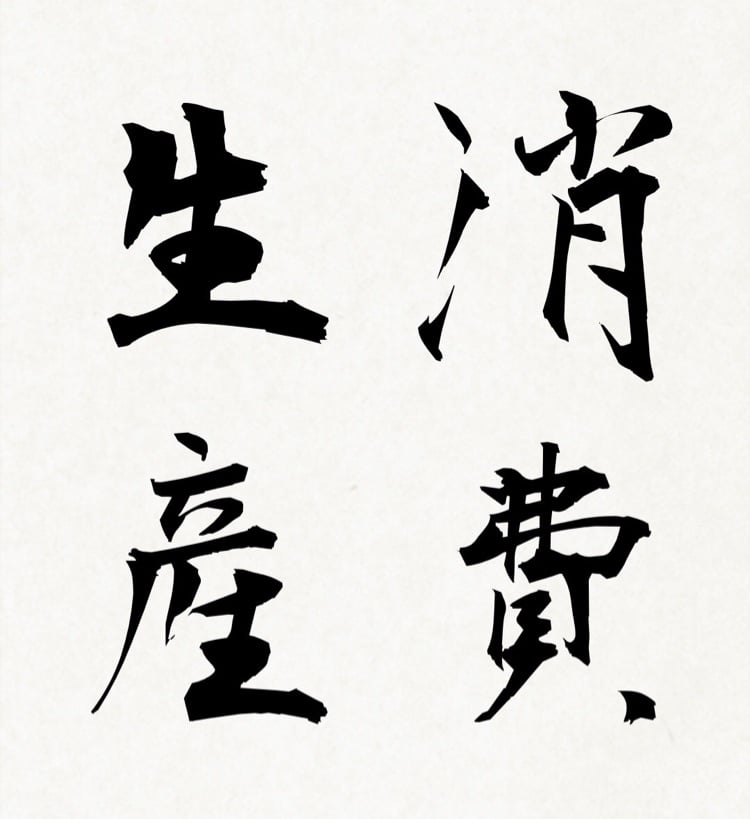 消費
生産